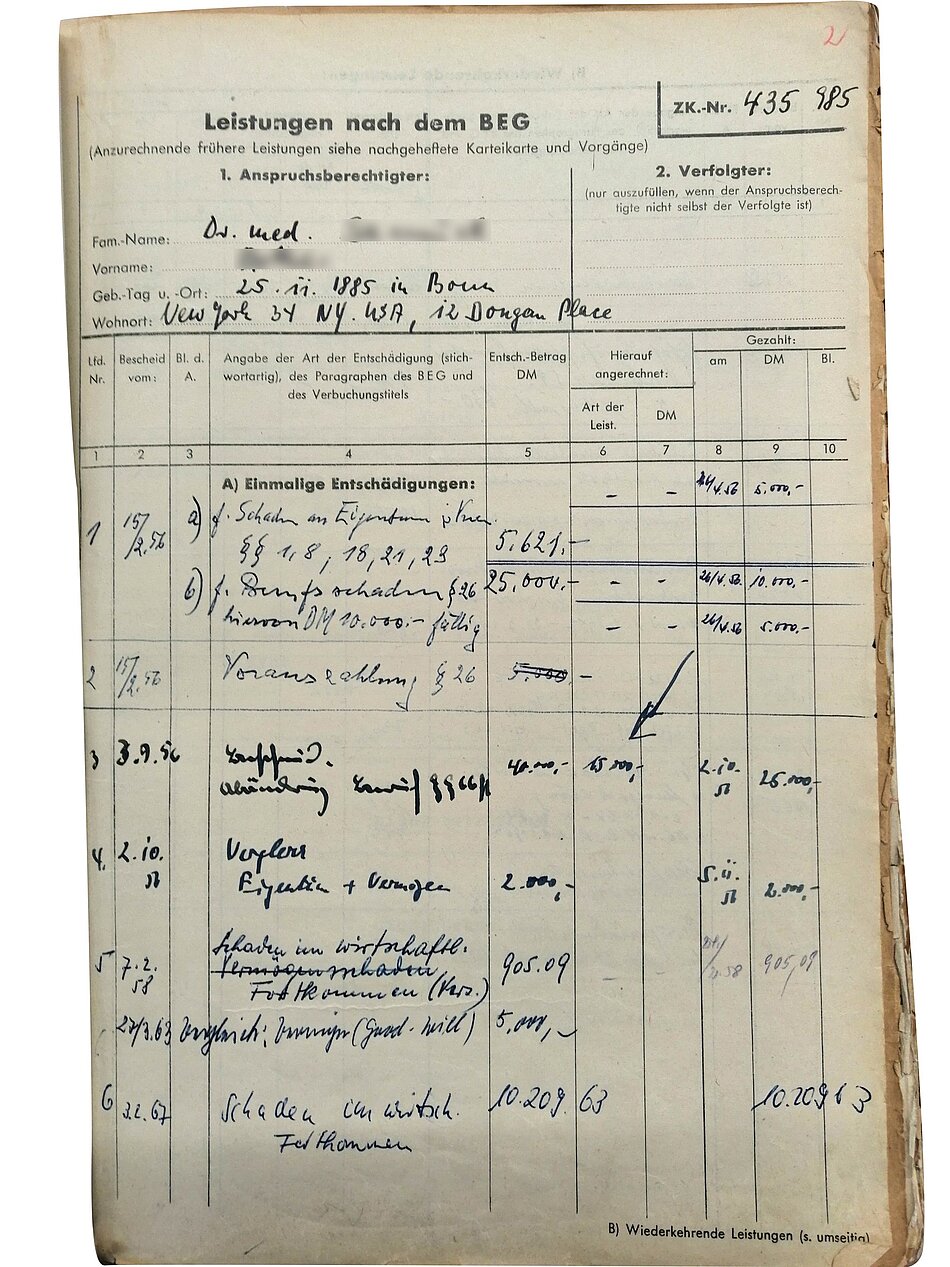 2
ZK.-Nr. 435 985
Leistungen nach dem BEG
(Anzurechnende frühere Leistungen siehe nachgeheftete Karteikarte und Vorgänge)
1. Anspruchsberechtigter:
2. Verfolgter:
(nur auszufüllen, wenn der Anspruchsberech-
tigte nicht selbst der Verfolgte ist)
Fam.-Name: Dr. med.
Vorname:
Geb.-Tag u. -Ort: 25. II. 1885 in Bonn
Wohnort: New York 34 NY. USA, 12 Dongan Place
Lfd. Nr.
Bescheid vom:
Bl. d. A.
Angabe der Art der Entschädigung (stich-
wortartig), des Paragraphen des BEG und
des Verbuchungstitels
Entsch.-Betrag DM
Hierauf angerechnet:
Art der Leist.
DM
Gezahlt:
am DM Bl.
1 2 3 4 5 6 7 8 9 10
A) Einmalige Entschädigungen:
- - 4.56 5.000,-
1 15/2.56 a) f. Schaden an Eigentum
§§ 1, 8, 18, 21, 23 5.621.-
b) f. Berufsschaden § 26 25.000.- - - 26/4.56 10.000.-
hiervon DM 10.000.- fällig - - 26/4.56 5.000.-
2 15/2.56 Vorauszahlung § 26 5.000.-
3 3.9.56 40.000,- 15.000,- 2.10. 56 25.000,-
Abänderung Beruf §§
4. 2.10. 56 Vergleich
Eigentum + Vermögen 2.000,- 5.11. 56 2.000,-
5 7.2. 58 Schaden im wirtschaftl.
Vermögensschaden 905.09 - - 58 905,09
Fortkommen (Vers.)
27/3.63 Vergleich: Vermögen (Good-will) 5.000,-
6 3.2.67 Schaden im wirtsch. 10.209 63 10.209 63
Fortkommen
B) Wiederkehrende Leistungen (s. umseitig)